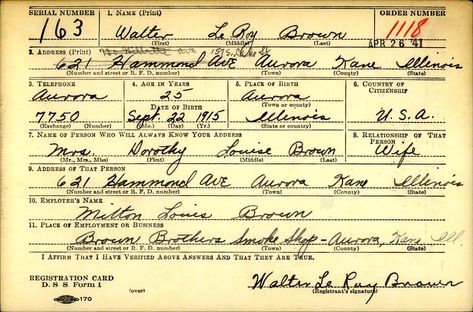 SERIAL NUMBER 1. NAME (Print) ORDER NUMBER
163 Walter Le Roy Brown 1118
(First) (Middle) (Last)
APR 26 41
2. ADDRESS (Print)
621 Hammond Ave Aurora Kane Illinois
(Number and street or R. F. D. number) (Town) (County) (State)
3. TELEPHONE 4. AGE IN YEARS 5. PLACE OF BIRTH 6. COUNTRY OF CITIZENSHIP
Aurora 25 Aurora
(Town or county)
DATE OF BIRTH
7750 Sept. 22 1915 Illinois U.S.A.
(Exchange) (Number) (Mo.) (Day) (Yr.) (State or country)
7. NAME OF PERSON WHO WILL ALWAYS KNOW YOUR ADDRESS 8. RELATIONSHIP OF THAT PERSON
Mrs. Dorothy Louise Brown Wife
(Mr., Mrs., Miss) (First) (Middle) (Last)
9. ADDRESS OF THAT PERSON
621 Hammond Ave Aurora Kane Illinois
(Number and street or R. F. D. number) (Town) (County) (State)
10. EMPLOYER'S NAME
Milton Louis Brown
11. PLACE OF EMPLOYMENT OR BUSINESS
Brown Brothers Smoke Shop - Aurora, Kane Ill
(Number and street or R. F. D. number) (Town) (County) (State)
I AFFIRM THAT I HAVE VERIFIED ABOVE ANSWERS AND THAT THEY ARE TRUE.
REGISTRATION CARD
D. S. S. Form 1 (over) Walter Le Roy Brown
170 (Registrant's signature)